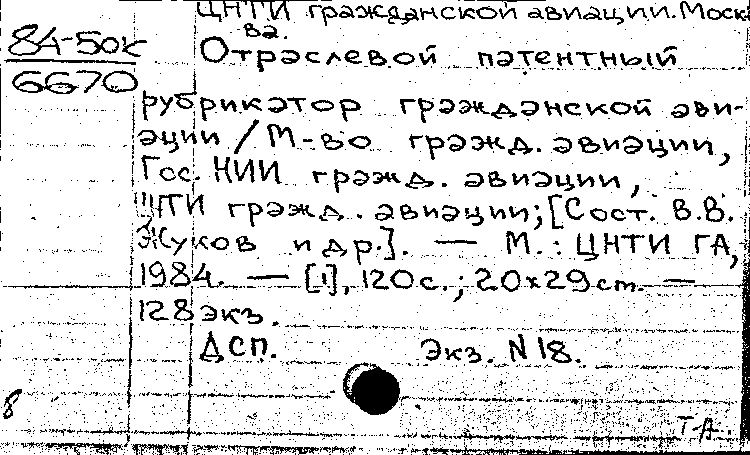 ЦНТИ гражданской авиации. Москва.
84-50к
6670
Отраслевой патентный
рубрикатор гражданской ави-
ации / М-во гражд. авиации,
Гос. НИИ гражд. авиации,
ЦНТИ гражд. авиации; [Сост. В.В.
Жуков и др.]. — М.: ЦНТИ ГА,
1984. — [1], 120 с.; 20х29 cm. —
128 экз.
ДСП. Экз. N 18.
8
Т-А.